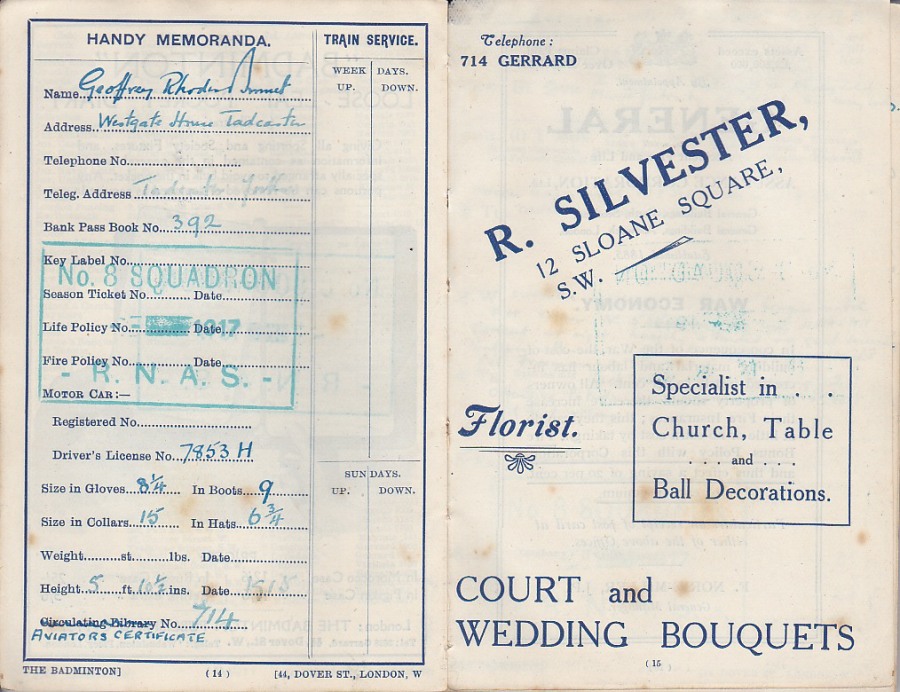 HANDY MEMORANDA.
TRAIN SERVICE.
WEEK DAYS.
UP. DOWN.
Name...Geoffrey Rhodes
Address...Westgate House Tadcaster
Telephone No.
Teleg. Address Tadcaster
Bank Pass Book No...392
Key Label No.
No. 8 SQUADRON
Season Ticket No. Date
Life Policy No. 1917 Date
Fire Policy No. Date
- R. N. A. S. -
MOTOR CAR:—
Registered No.
Driver's License No...7853 H
Size in Gloves...8¼ In Boots...9
Size in Collars...15 In Hats...6¾
Weight st. lbs. Date
Height...5 ft. 10½ ins. Date
Circulating Library No...714
AVIATORS CERTIFICATE
SUNDAYS.
UP. DOWN.
THE BADMINTON] (14) [44, DOVER ST., LONDON, W
Telephone:
714 GERRARD
R. SILVESTER,
12 SLOANE SQUARE,
S.W.
Florist.
Specialist in
Church, Table
... and ...
Ball Decorations.
COURT and
WEDDING BOUQUETS
(15)